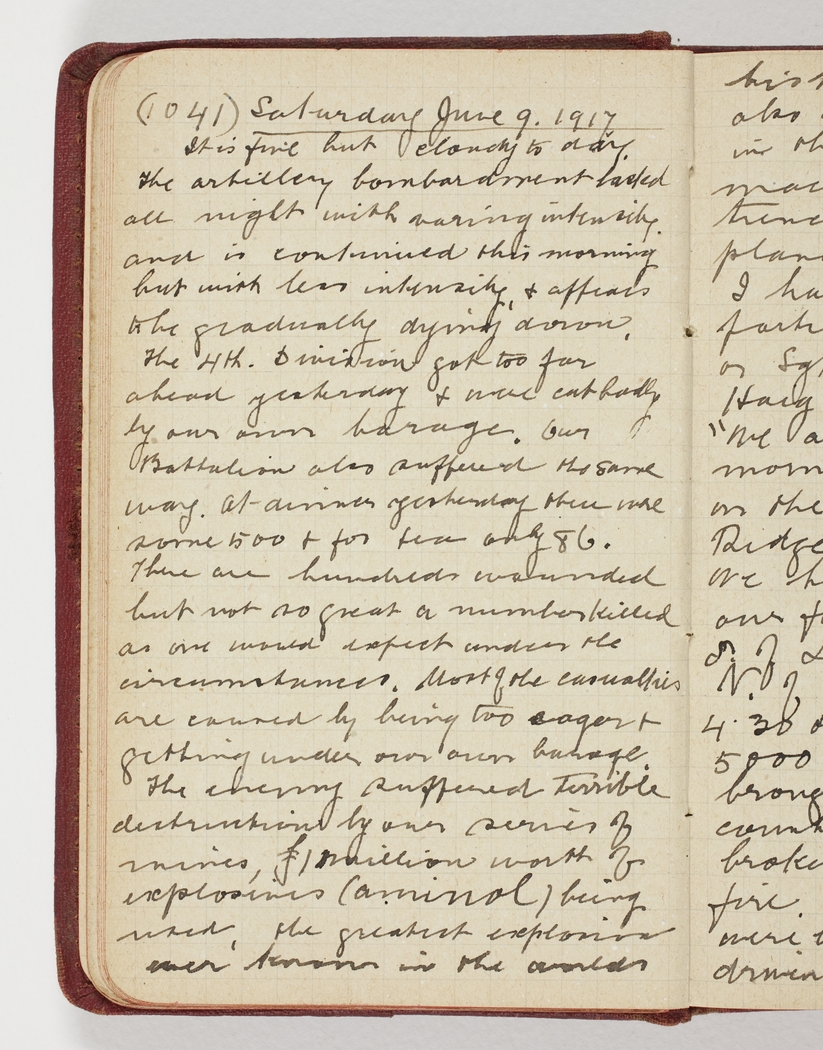 (1041) Saturday June 9. 1917
It is fine but cloudy to day.
The artillery bombardment lasted
all night with varing intensity.
and is continued this morning
but with less intensity, & appears
to be gradually dying down.
The 4th. Division got too far
ahead yesterday & were cut badly
by our own barage. Our
Battalion also suffered the same
way. At dinner yesterday there were
some 500 & for tea only 86.
There are hundreds wounded
but not so great a number killed
as one would expect under the
circumstances. Most of the casualties
are caused by being too eager &
getting under our own barage.
The enemy suffered terrible
destruction by our series of
mines, £1 million worth of
explosives (aminol) being
used, the greatest explosion
ever known in the worlds
his
also
in th
mac
trenc
plan
I ha
farth
or Sgt
Haig
"We a
morn
on the
Ridge
we h
our f
S. of
N. of
4.30
5000
broug
count
broke
fire.
were
driven